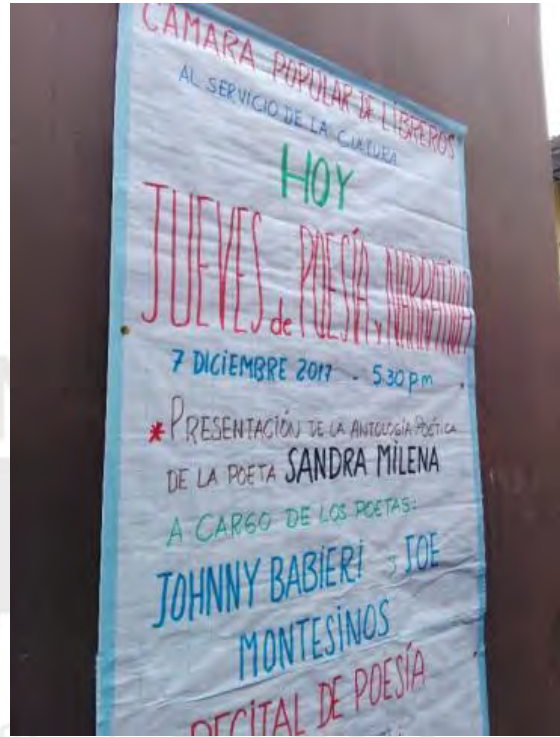 CÁMARA POPULAR DE LIBREROS
AL SERVICIO DE LA CULTURA
HOY
JUEVES de POESÍA y NARRATIVA
7 DICIEMBRE 2017 - 5.30 pm
* PRESENTACIÓN DE LA ANTOLOGÍA POÉTICA
DE LA POETA SANDRA MILENA
A CARGO DE LOS POETAS:
JOHNNY BABIERI y JOE
MONTESINOS
RECITAL DE POESÍA